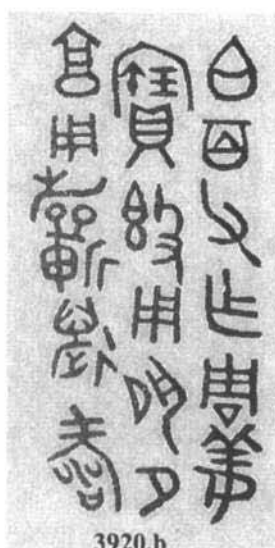 白百父乍周姜
寶𣪘用夙夕
亯用𣄨萬壽
3920 b